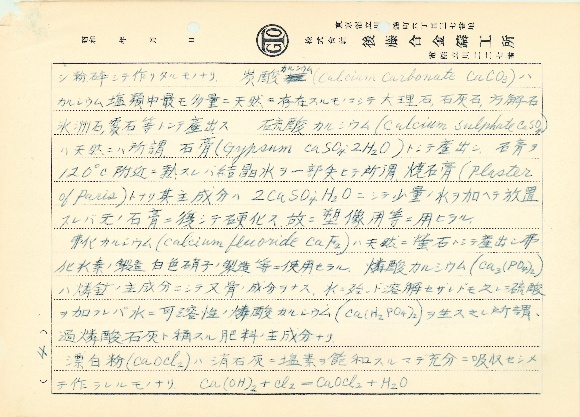 昭和 年 月 日
株式会社 後藤合金鑄工所
シ粉碎シテ作リタルモノナリ 炭酸カルシウム(calcium carbonate CaCO3)ハ
カルシウム塩類中最モ多量ニ天然ニ存在スルモノニシテ大理石,石灰石,方解石
氷洲石霰石等トシテ産出ス 硫酸カルシウム(calcium sulphate CaSO4)
ハ天然ニハ所謂石膏(Gypsum CaSO4・2H2O)トシテ産出シ,石膏ヲ
120°C附近ニ熱スレバ結晶水ヲ一部失ヒテ所謂焼石膏(Plaster
of Paris)トナリ其主成分ハ 2CaSO4・H2Oニシテ少量ノ水ヲ加ヘテ放置
スレバ元ノ石膏ニ復シテ硬化ス,故ニ塑像用等ニ用ヒラル.
弗化カルシウム(calcium fluoride CaF2)ハ天然ニ螢石トシテ産出シ弗
化水素ノ製造 白色硝子ノ製造等ニ使用セラル. 燐酸カルシウム(Ca3(PO4)2)
ハ燐鉱ノ主成分ニシテ又骨ノ成分ヲナス,水ニ殆ンド溶解セザレドモ之ニ硫酸
ヲ加フレバ水ニ可溶性ノ燐酸カルシウム(Ca(H2PO4)2)ヲ生ズ之レ所謂
過燐酸石灰ト稱スル肥料ノ主成分ナリ
漂白粉(CaOCl2)ハ消石灰ニ塩素ヲ飽和スルマデ充分ニ吸収セシメ
テ作ラレルモノナリ Ca(OH)2+Cl2=CaOCl2+H2O